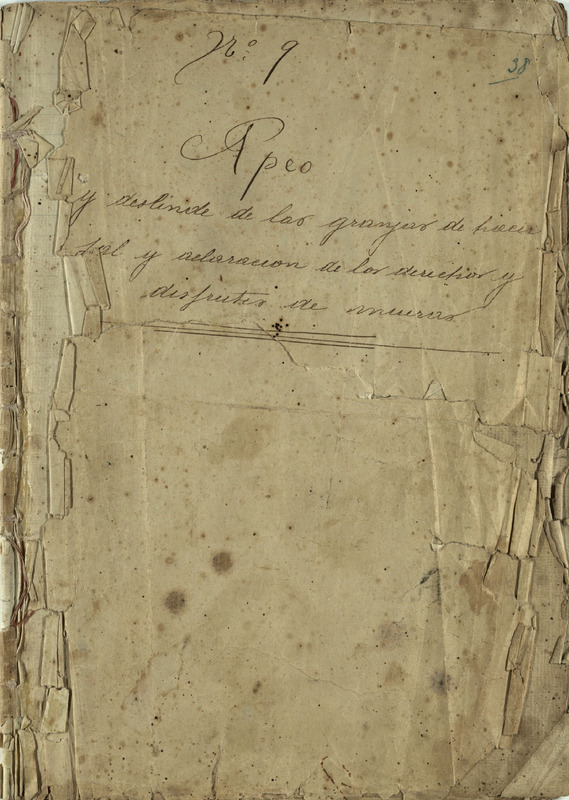 Nº. 9
38
Apeo
y deslinde de las granjas de hacer
sal y aclaracion de los derechos y
disfrutes de mueras